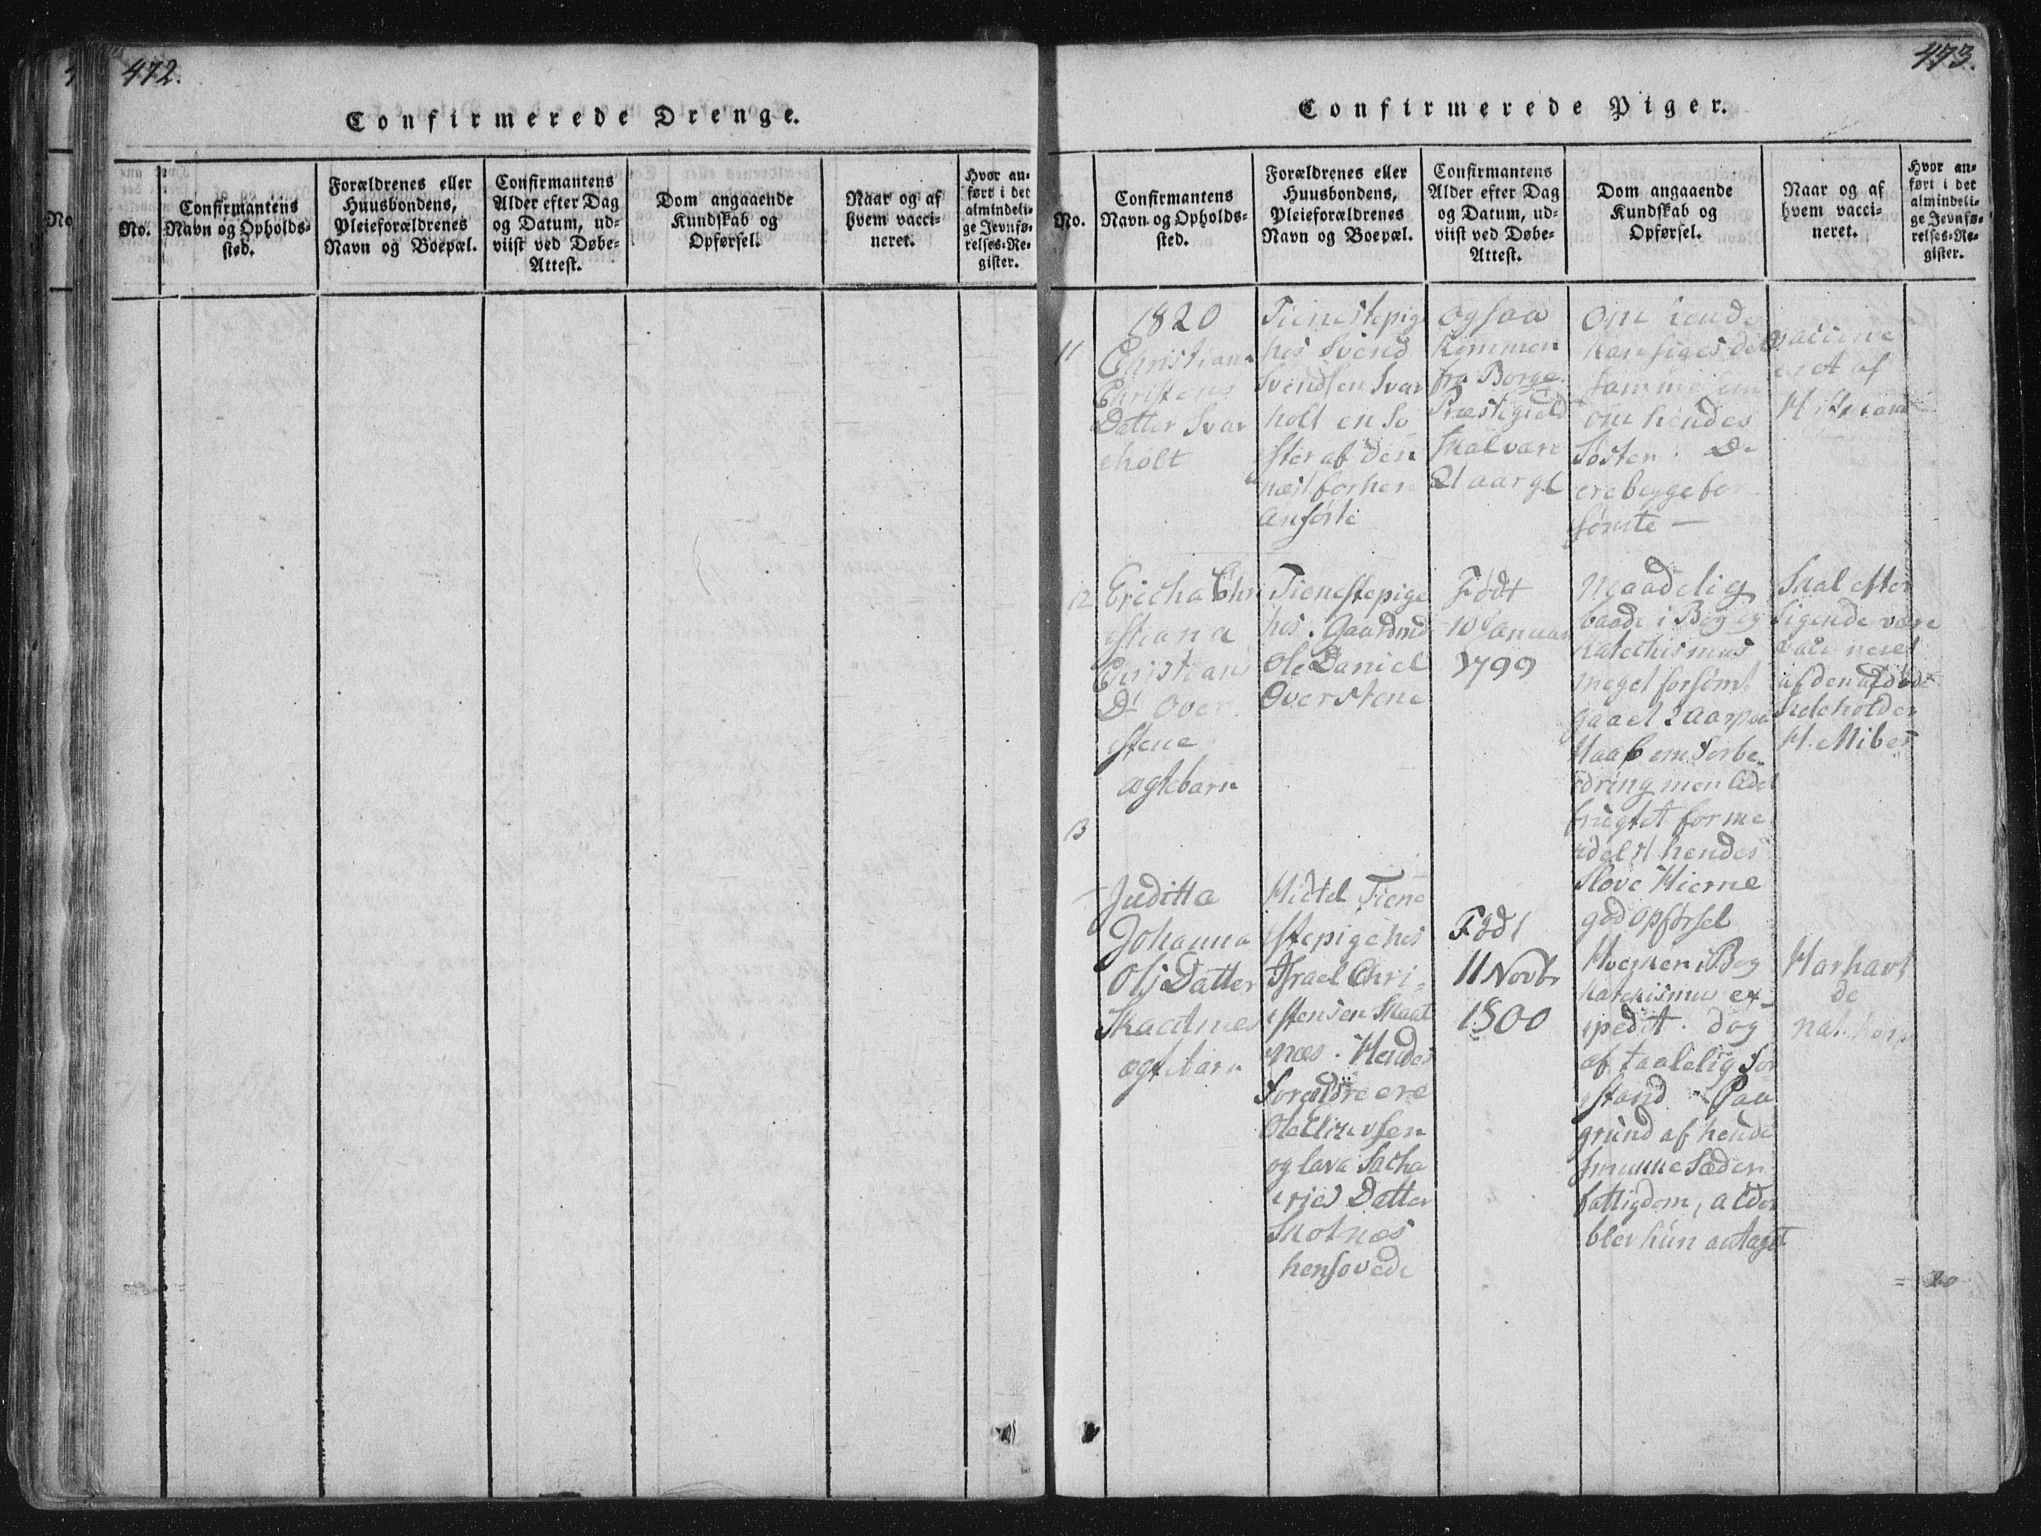 472.
Confirmerede Drenge.
No.
Confirmantens
Navn og Opholds-
sted.
Forældrenes eller
Huusbondens,
Pleieforældrenes
Navn og Boepæl.
Confirmantens
Alder efter Dag
og Datum, ud-
viist ved Døbe-
Attest.
Dom angaaende
Kundskab og
Opførsel.
Naar og af
hvem vacci-
neret.
Hvor an-
ført i det
almindeli-
ge Jevnfø-
relses-Re-
gister.
473.
Confirmerede Piger.
No.
Confirmantens
Navn og Opholds-
sted.
Forældrenes eller
Huusbondens,
Pleieforældrenes
Navn og Boepæl.
Confirmantens
Alder efter Dag
og Datum, ud-
viist ved Døbe-
Attest.
Dom angaaende
Kundskab og
Opførsel.
Naar og af
hvem vacci-
neret.
Hvor an-
ført i det
almindeli-
ge Jevnfø-
relses-Re-
gister.
1820
11
Christiana
Christens
Datter Svar
eholt
Tienestepige
hos Svend
Svendsen Svar
holt en Sø
ster af den
næst forhen
anførte
ogsaa
kommen
fra Borge
Præstegield
skal være
21 aar gl
Om hende
kan siges det
samme som
om hendes
Søster. De
ere begge for
sømte —
vaccine
eret af
12
Ericha Chri
stiana
Christians
Dr Over
stene
ægtebarn
Tienestepige
hos Gaardmd
Ole Daniel
Overstene
Født
10 Januar
1799
Maadelig
baade i Bog og
Katechismus
meget forsømt
gaaet 2 aar paa
Haab om Forbe
dring men lidet
frugtet forme
delst hendes
sløve Hierne
god opførsel
Skal efter
sigende være
vaccineret
af den afdøde
H. Miber
13
Juditta
Johanna
Ols Datter
Skaatnes
ægtebarn
Tiene
stepige hos
Israel Chri
stensen Skaat
næs. Hendes
Forældre ere
Ole
og Lava Sacha
rias Datter
Skotnæs
hensovede
Født
11 Novbr
1800
Hverken i Bog
Katekismus ex-
pedit. dog
af taalelig For
stand Paa
grund af hende
smukke Sæder
fattigdom, alder
blev hun antaget
Har havt
de
nat. Kop